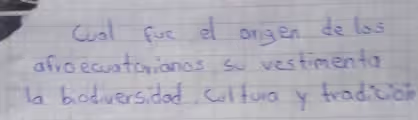 Cual fue el origen de los
afroecuatorianos su vestimenta
la biodiversidad cultura y tradición